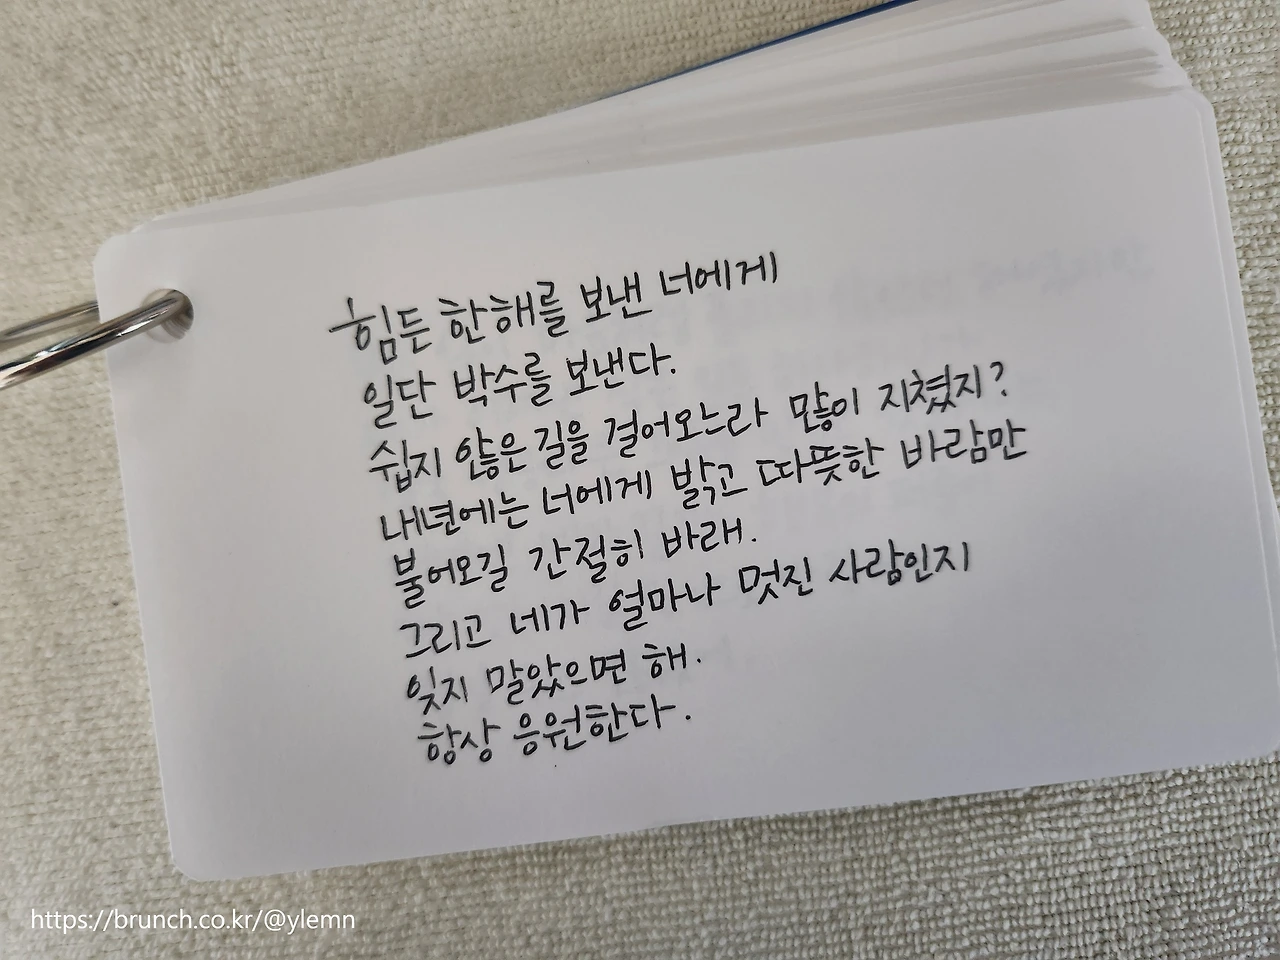 힘든 한해를 보낸 너에게
일단 박수를 보낸다.
쉽지 않은 길을 걸어오느라 많이 지쳤지?
내년에는 너에게 밝고 따뜻한 바람만
불어오길 간절히 바래.
그리고 네가 얼마나 멋진 사람인지
잊지 말았으면 해.
항상 응원한다.
https://brunch.co.kr/@ylemn